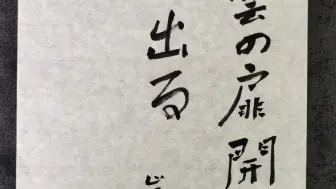 雲の扉開
出る